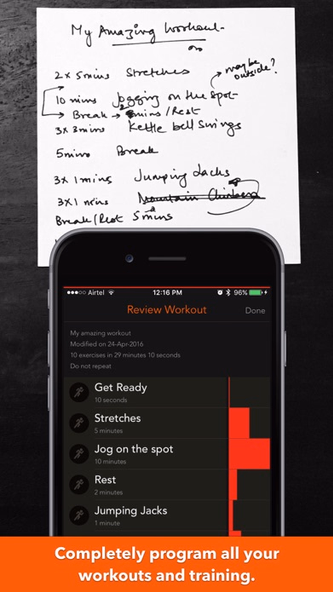 My Amazing Workout-
2 x 5 mins Stretches
maybe outside?
10 mins Jogging on the spot-
Break → 2mins/Rest
3 x 3mins Kettle bell swings
5 mins Break
3 x 1 mins Jumping Jacks
3 x 1 mins Mountain Climbers
Break/Rest 5 mins
Airtel 12:16 PM 96%
Review Workout Done
My amazing workout
Modified on 24-Apr-2016
10 exercises in 29 minutes 10 seconds
Do not repeat
Get Ready
10 seconds
Stretches
5 minutes
Jog on the spot
10 minutes
Rest
2 minutes
Jumping Jacks
1 minute
Completely program all your
workouts and training.